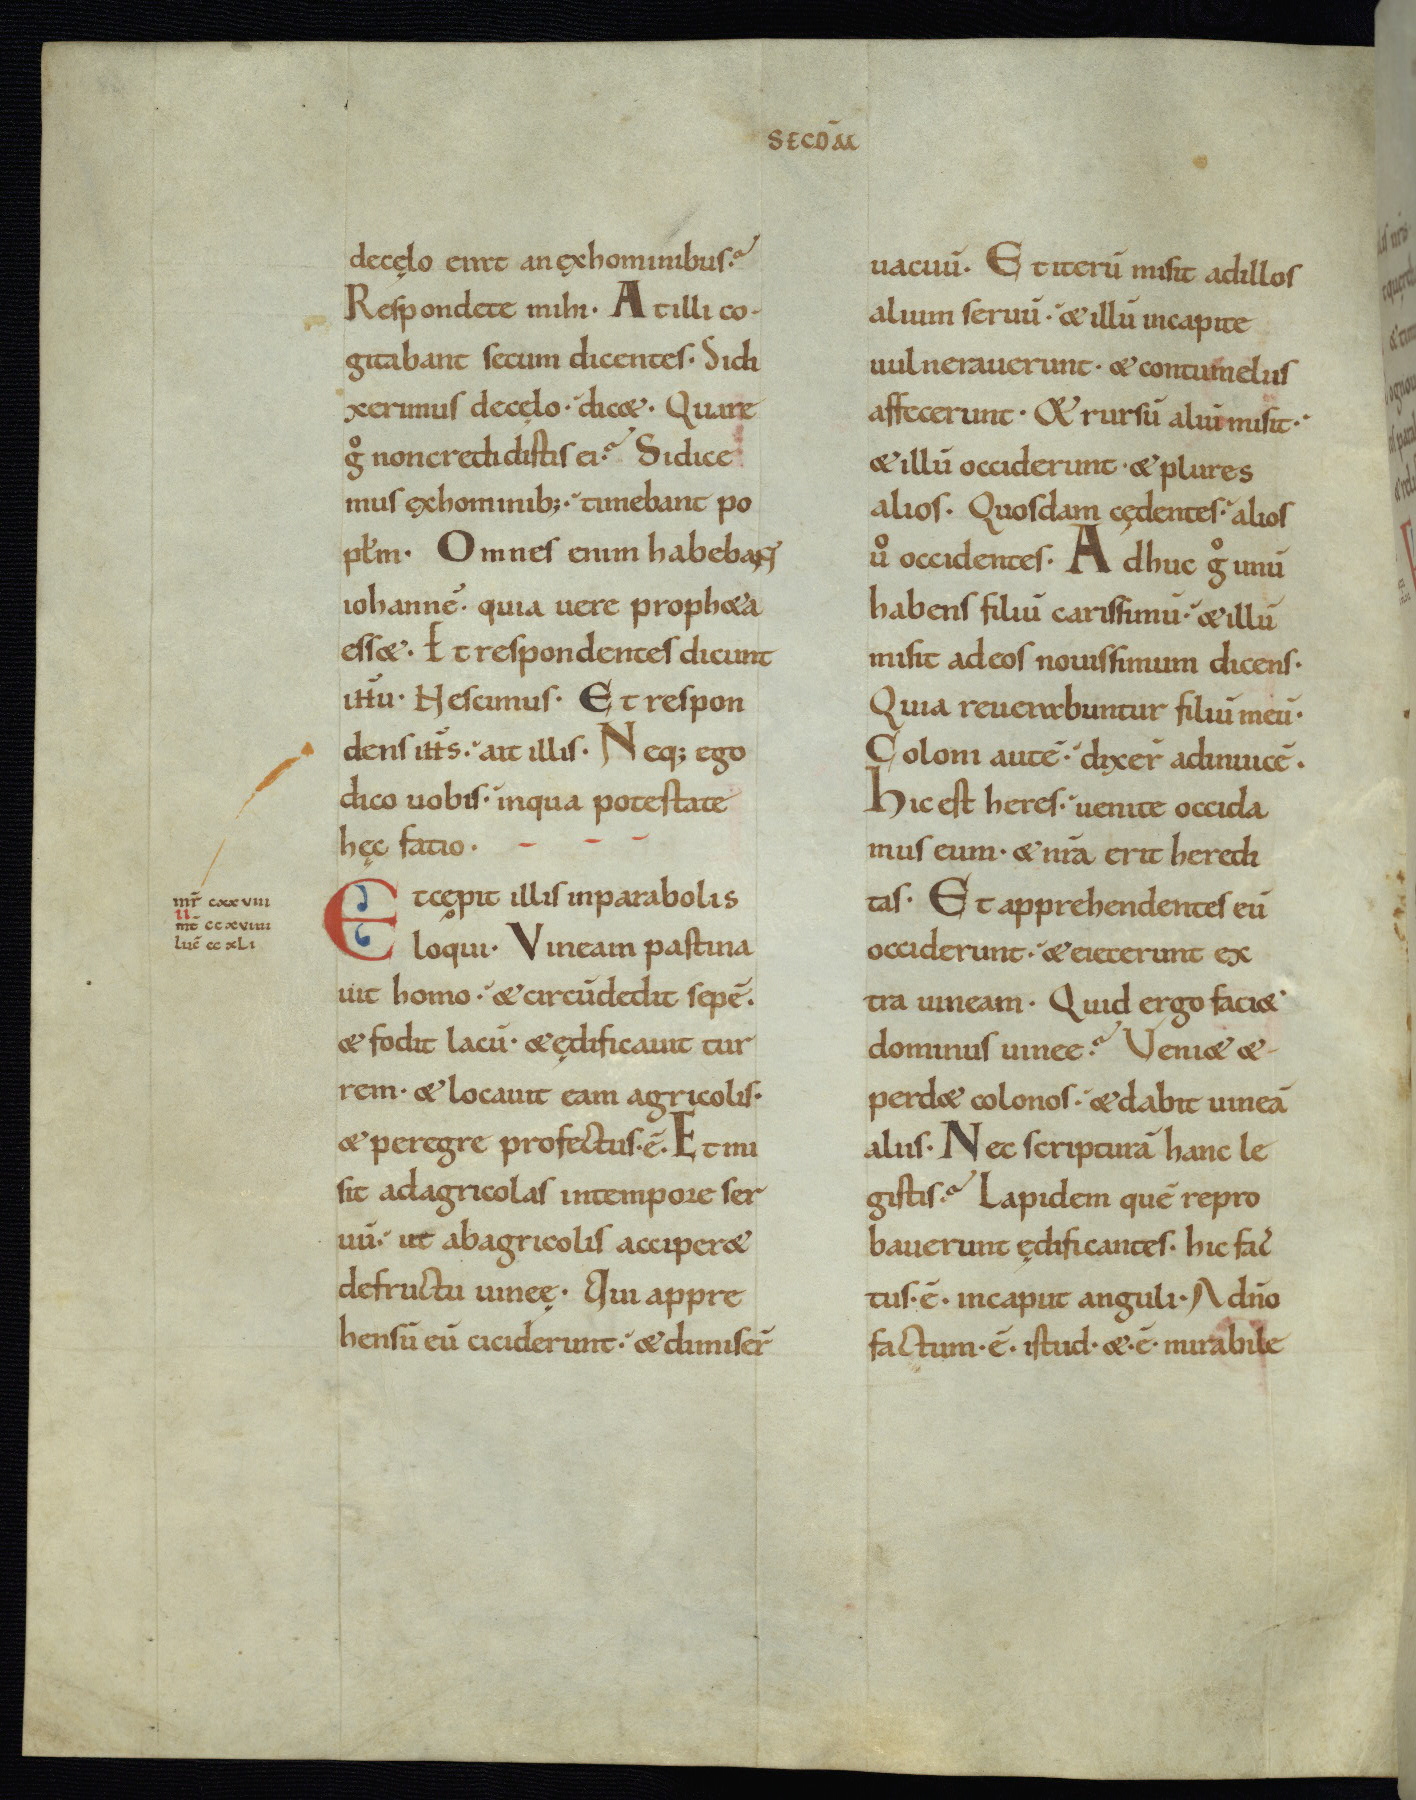 SECDM̄
decęlo erat an ęx hominibus.
Respondete mihi. At illi co-
gitabant secum dicentes. Si di
xerimus decęlo. dic&. Quare
g̊ non credidistis ei. Si dice
mus ęx hominib; timebant po
pl̄m. Omnes enim habebant
iohannē. quia uere proph&a
ess&. Et respondentes dicunt
ih̄u. Nescimus. Et respon
dens ih̄s. ait illis. Neq; ego
dico uobis. inqua potestate
hęc fatio.
Et cępit illis inparabolis
loqui. Vineam pastina
uit homo. & circūdedit sepē.
& fodit lacū. & ędificauit tur
rem. & locauit eam agricolis.
& peregre profectus.ē. Et mi
sit adagricolas intempore ser
uū. ut abagricolis acciper&
defructu uineę. Qui appre
hensū eū ciciderunt. & dimiser̄
mr̄ cxxviii
mt̄ ccxviiii
luc̄ ccxLi
uacuū. Et iterū misit adillos
alium seruū. & illū incapite
uulnerauerunt. & contumeliis
affecerunt. & rursū aliū misit.
& illū occiderunt. & plures
alios. Quosdam cędentes. alios
ů occidentes. Adhuc g̊ unū
habens filiū carissimū. & illū
misit adeos nouissimum dicens.
Quia reuerebuntur filiū meū.
Coloni autē. dixer̄ adinuicē.
Hic est heres. uenite occida
mus eum. & nr̄a erit heredi
tas. Et apprehendentes eū
occiderunt. & eiecerunt ex
tra uineam. Quid ergo faci&
dominus uinee. Veni& &
perd& colonos. & dabit uineā
aliis. Nec scripturā hanc le
gistis. Lapidem quē repro
bauerunt ędificantes. hic fac
tus.ē. incaput anguli. A dn̄o
factum.ē. istud. &.ē. mirabile